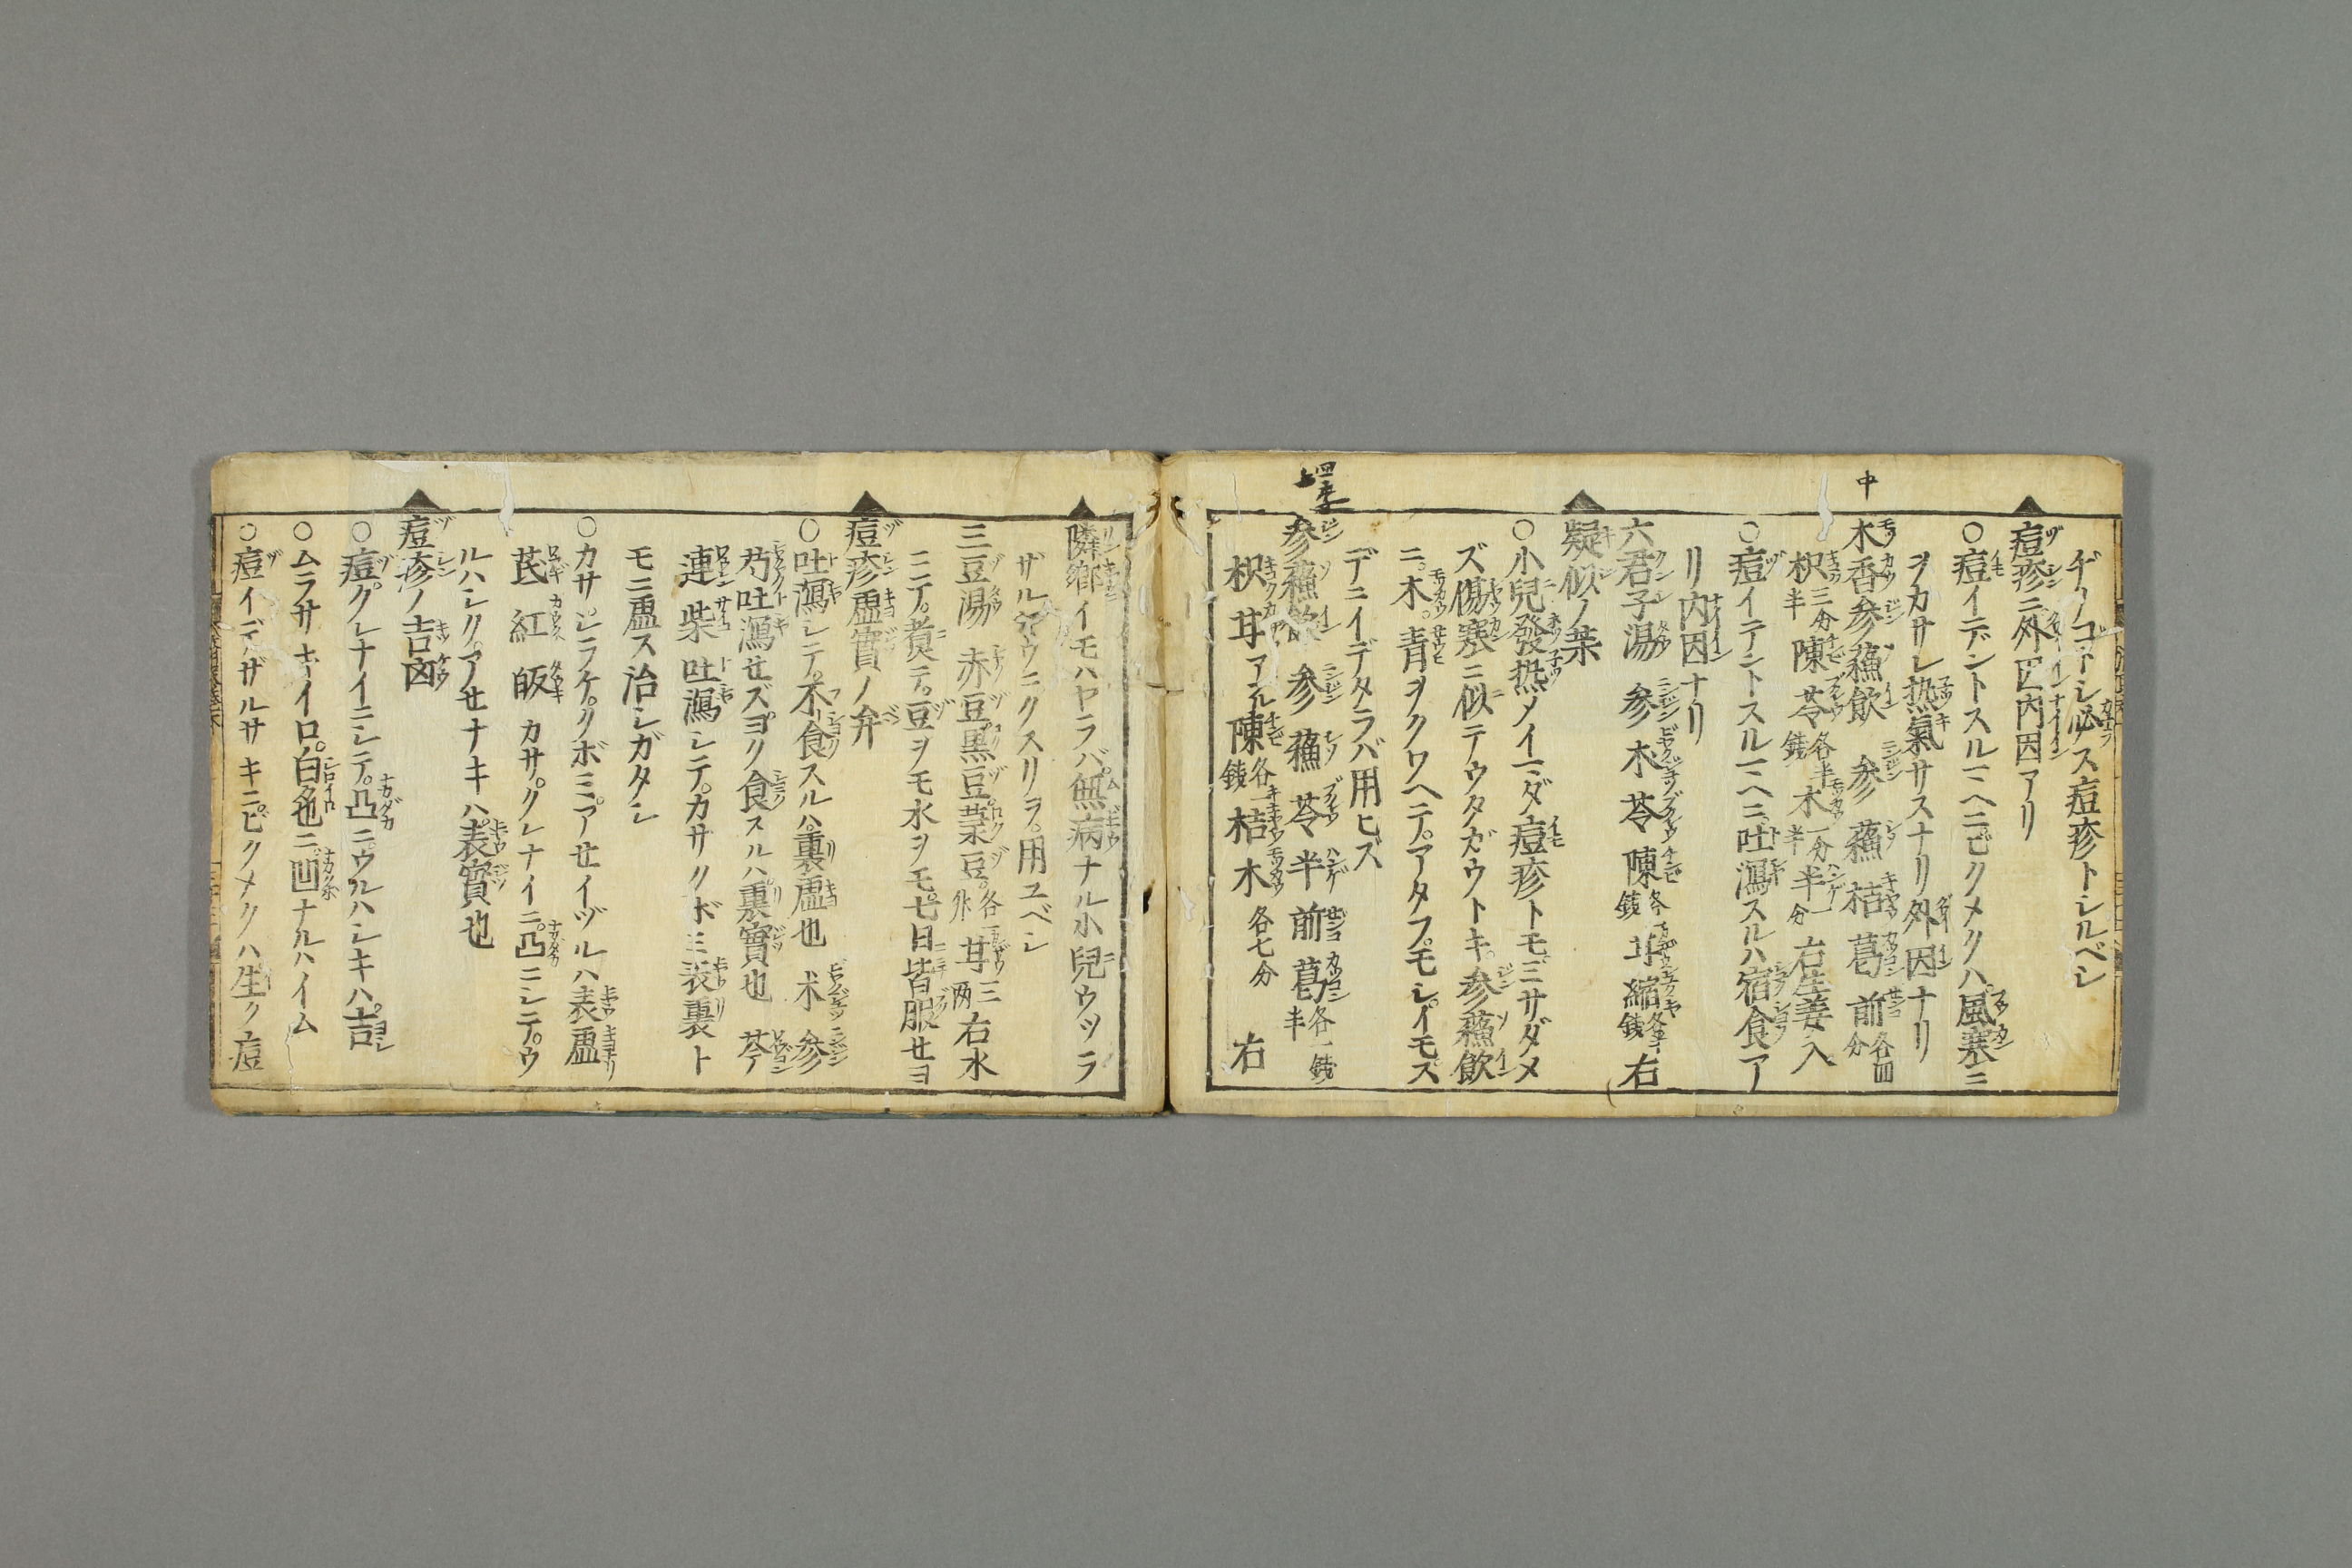 中
ヂノゴトシ必ス痘疹トシルベシ
痘疹ニ外因内因アリ
○痘イデントスルマヘニビクメクハ風寒ニ
ヲカサレ热氣サスナリ外因ナリ
木香参蘓飲 参 蘓 桔 葛 前各四分
枳三分半陳苓各半銭木一分半半一分右生姜入
○痘イテントスルマヘニ吐瀉スルハ宿食ア
リ内因ナリ
六君子湯 参 木 苓 陳各銭 甘縮各銭右
疑似ノ葉
○小兒發热ノイマダ痘疹トモニサダメ
ズ傷寒ニ似テウタガウトキ参蘓飲
ニ木青ヲクワヘテアタフモシイモス
デニイデタラバ用ヒズ
参蘓飲 参 蘓 苓 半 前 葛各一銭半
枳 甘 陳各一銭 桔 木各七分 右
隣郷イモハヤラバ無病ナル小兒ウツラ
ザルヤウニクスリヲ用ユベシ
三豆湯 赤豆黒豆菉豆各一升甘三两右水
ニテ煮テ豆ヲモ水ヲモ七日皆服セヨ
痘疹虚實ノ弁
○吐瀉シテ不食スルハ裏虚也 术 参
芍吐瀉セズヨク食スルハ裏實也 芩
連 柴 吐瀉シテカサクボミ表裏ト
モニ虚ス治シガタシ
○カサシラケクボミアセイヅルハ表虚
芪 紅 皈 カサクレナイニ凸ニシテウ
ルハシクアセナキハ表實也
痘疹ノ吉凶
○痘クレナイニシテ凸ニウルハシキハ吉
○ムラサキイロ白色ニ凹ナルハイム
○痘イデザルサキニビクメクハ生ク痘